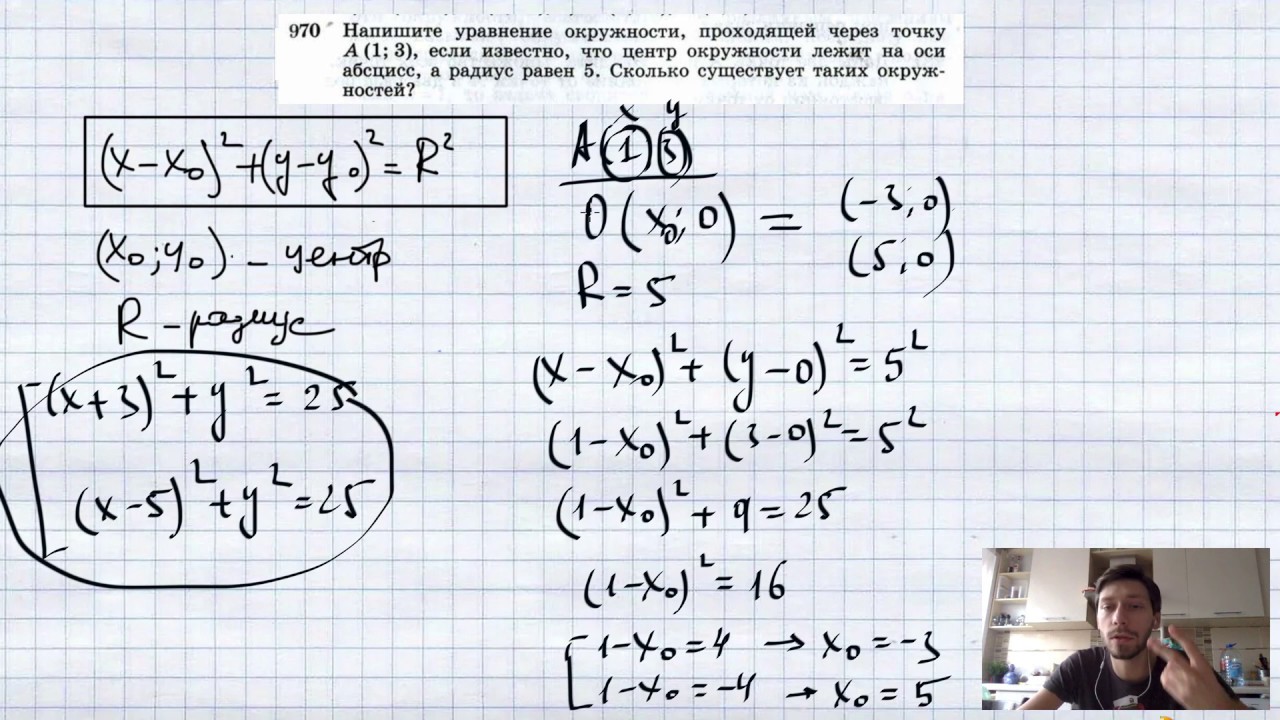 970 Напишите уравнение окружности, проходящей через точку
A (1; 3), если известно, что центр окружности лежит на оси
абсцисс, а радиус равен 5. Сколько существует таких окруж-
ностей?
(x-x₀)²+(y-y₀)²=R²
(x₀;y₀) - центр
R - радиус
[(x+3)²+y²=25
(x-5)²+y²=25
x y
A(1)(3)
O(x₀;0) = (-3;0)
(5;0)
R=5
(x-x₀)²+(y-0)²=5²
(1-x₀)²+(3-0)²=5²
(1-x₀)²+9=25
(1-x₀)²=16
[1-x₀=4 → x₀=-3
1-x₀=-4 → x₀=5